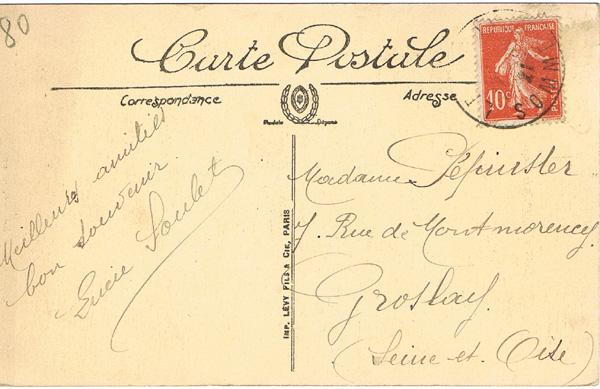 80
Carte Postale
RÉPUBLIQUE FRANÇAISE
10c
SOMM
Correspondance
Adresse
Modèle Déposé
Meilleures amitiés
bon souvenir
Lucie Loulet
Madame
7. Rue de Montmorency
Groslay
(Seine-et-Oise)
IMP. LÉVY FILS & CIE, PARIS